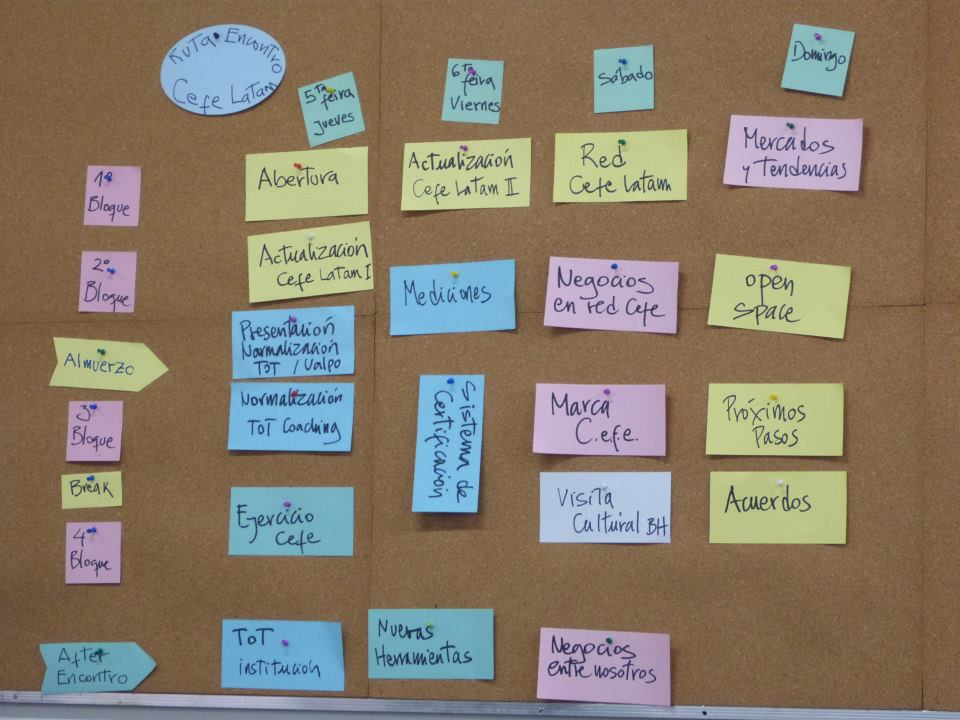 Ruta Encontro
Cefe Latam
5ta feira
jueves
6ta feira
Viernes
sábado
Domingo
1º
Bloque
Abertura
Actualización
Cefe Latam II
Red
Cefe Latam
Mercados
y Tendencias
2º
Bloque
Actualización
Cefe Latam I
Mediciones
Negocios
en red Cefe
open
space
Almuerzo
Presentación
Normalización
ToT / Valpo
3º
Bloque
Normalización
ToT Coaching
Sistema de
Certificación
Marca
C.e.f.e.
Próximos
Pasos
Break
4º
Bloque
Ejercicio
Cefe
Visita
Cultural BH
Acuerdos
After
Encontro
ToT
institución
Nuevas
Herramientas
Negocios
entre nosotros